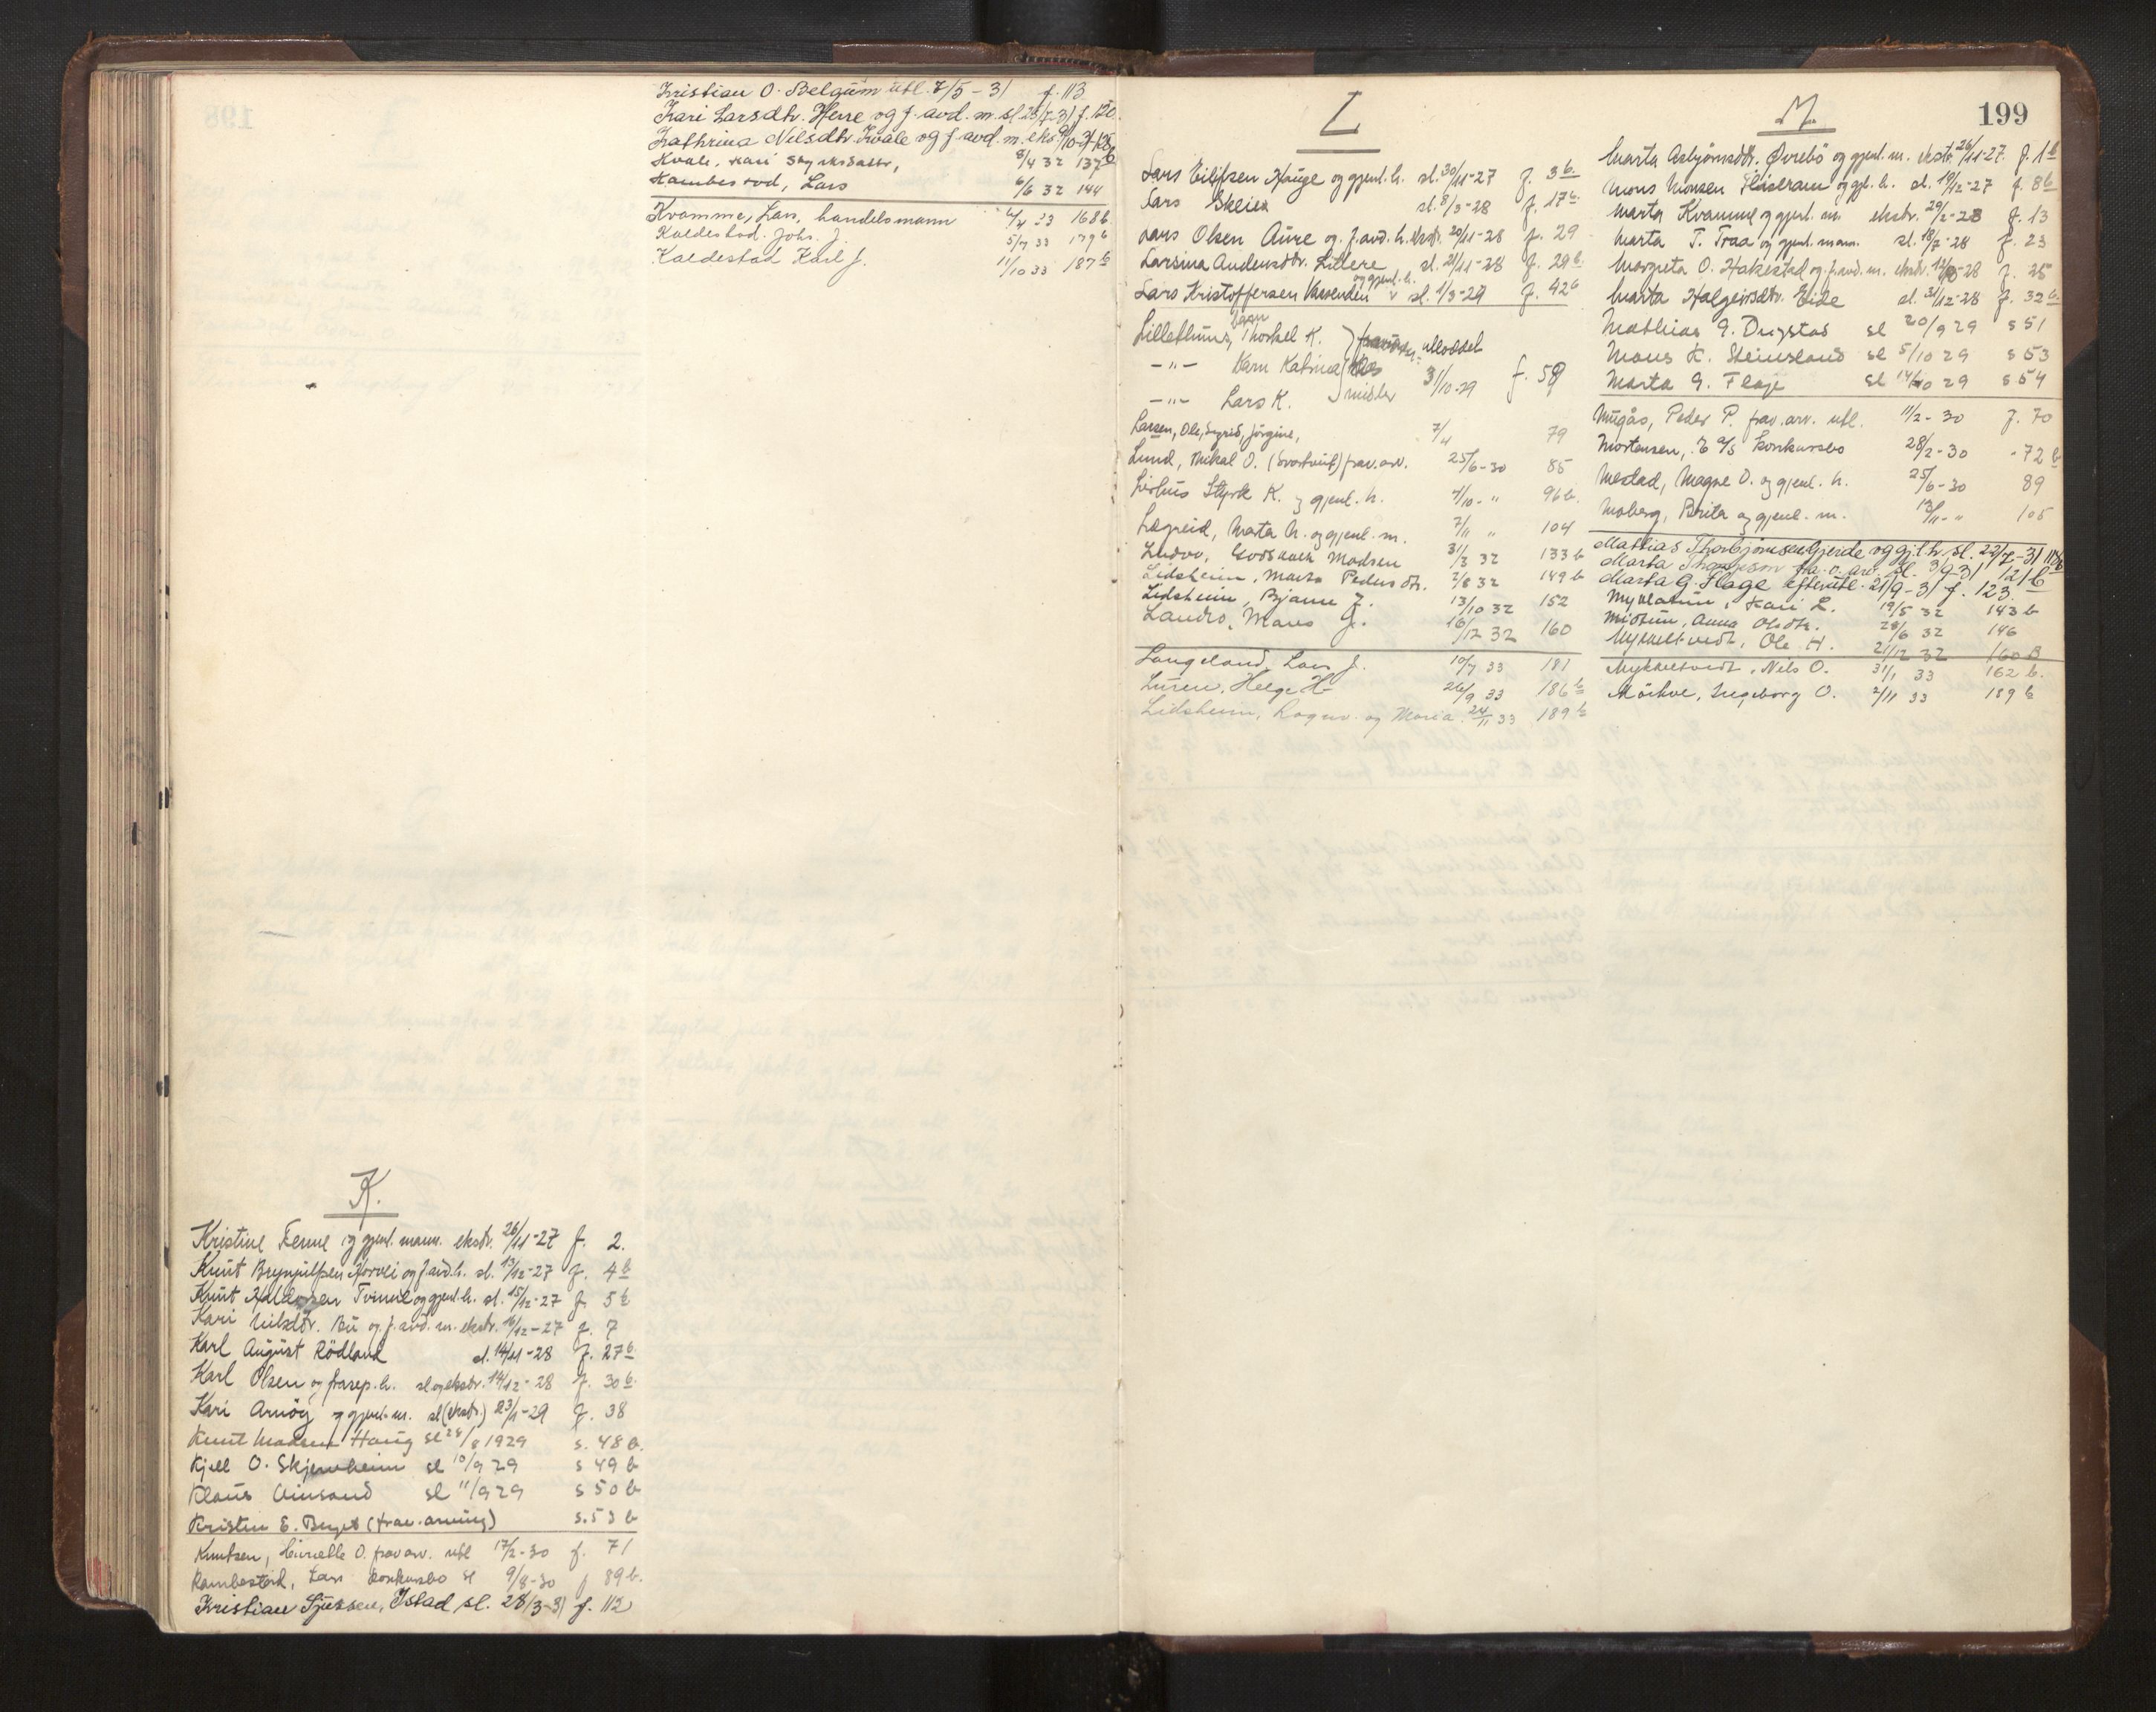 K.
Kristine Fenne og gjenl. mann. ekstr. 26/11-27 f. 2.
Knut Brynjulfsen Horvei og f.avd.h. sl. 13/12-27 f. 4b
Knut Haldorsen Tvinne og gjenl.h. sl. 15/12-27 f. 5b
Kari Nilsdtr. Bü og f.avd.m. ekstr. 16/12-27 f. 7
Karl August Rödland sl. 14/11-28 f. 27b
Karl Olsen og frasep.h. sl og ekstr. 14/12-28 f. 30b
Kari Arnöy og gjenl.m. sl (ekstr.) 23/1-29 f. 38
Knut Madsen Haug sl 28/8 1929 s. 48b.
Kjell O. Skjerveheim sl 10/9 29 s 49b
Klaus Vinsand sl 11/9 29 s 50b
Kristen E. (frav.arving) s. 53b
Knutsen, O. frav arv. utl 17/2-30 f. 71
Kambestad, Lars konkursbo sl 9/8-30 f 89b.
Kristian Sjursen, Istad sl. 28/3-31 f. 112
Kristian O. Belgum utl. 7/5-31 f. 113
Kari Larsdtr. Herre og f. avd. m. sl 23/7-31 f. 120.
Kathrina Nilsdtr. Kvale og f. avd. m. eks. 9/10-31 f. 125b
Kvale, Kari 8/4 32 137b
Kambestad, Lars 6/6 32 144
Kvamme, Lars, handelsmann 4/4 33 168b
Kaldestad. Johs. J. 5/7 33 179b
Kaldestad Karl J. 11/10 33 187b
L
Lars Eilifsen Hauge og gjenl.h. sl. 30/11-27 f. 3b
Lars Skeie sl. 8/3-28 f. 17b.
Lars Olsen Aure og f.avd.h. ekstr. 20/11-28 f. 29
Larsina Andersdtr. Littere sl. 21/11-28 f. 29b.
Lars Kristoffersen Vassenden og gjenl.h. sl. 1/3-29 f. 42b
Lillethuns, barn Thorkel K.
-"- Karn Katrina utloddet 31/10-29 f. 59
-"- Lars K. midler
Larsen, Ole, Sigrid, Jörgine, 7/4 79
Lund, Mikal O. (Svartveit) frav.arv. 25/6-30 85
Lirhus Styrk K. og gjenl. h. 4/10-" 96b.
Lægreid, Marta N. og gjenl. m. 7/11 " 104
Ludvo, Godskalk Madsen 31/3 32 133b
Lidsheim, Marta Pedersdtr. 2/8 32 149b
Lidsheim, Bjarne J. 13/10 32 152
Landro, Mons J. 16/12 32 160
Langeland, Lars J. 10/7 33 181
Luren, Helge H. 26/9 33 186b
Lidsheim, Ragnv. og Maria 24/11 33 189b
M. 199
Marta Asbjörnsdtr. Øvrebö og gjenl. m. ekstr. 26/11-27. f. 1b
Mons Monsen Flaseram og gjl. h. sl. 19/12-27 f. 8b
Marta Kvamme og gjenl. m. ekstr. 29/2-28 f. 13
Marta T. Traa og gjenl. mann. sl. 18/7-28 f. 23
Margreta O. Hakestad og f.avd.m. ekstr. 12/10-28 f. 25
Marta Holgeirsdtr. Eide sl. 31/12-28 f. 32b.
Mathias G. Dugstad sl 20/9 29 s 51
Mons K. Steinsland sl 5/10 29 s 53
Marta G. Flage sl 14/10 29 s 54
Mugås, Peder P. frav.arv. utl. 11/2-30 f. 70
Mortensen, E a/s konkursbo 28/2-30 - 72b
Mestad, Magne O. og gjenl. h. 25/6-30 89
Moberg, Brita og gjenl. m. 12/11-" 105
Mathias Thorbjörnsen Gjerde og gjl.h. sl. 22/7-31 118b
Marta Thompson fra.v.arv. sl. 3/9 31 121b
Marta G. Flage efterutl. 21/9-31 f. 123.
Myklatun, Kari L. 19/5 32 143b
Midtun, Anna Olsdtr. 28/6 32 146
Mykkeltvedt, Ole H. 21/12 32 160B
Mykkeltvedt, Nils O. 31/1 33 162b.
Mörkve, Ingeborg O. 2/11 33 189b